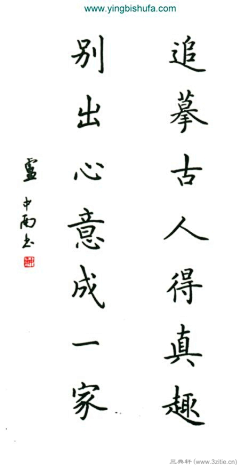 www.yingbishufa.com
追摹古人得真趣
别出心意成一家
盧中南书
三典轩 (www.3zitie.cn)